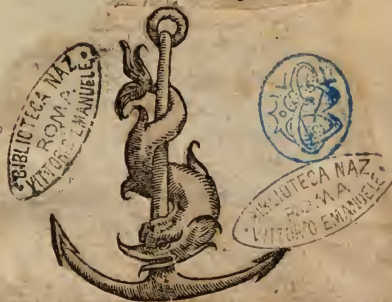 BIBLIOTECA NAZ.
ROMA
VITTORIO EMANUELE
BIBLIOTECA NAZ.
ROMA
VITTORIO EMANUELE